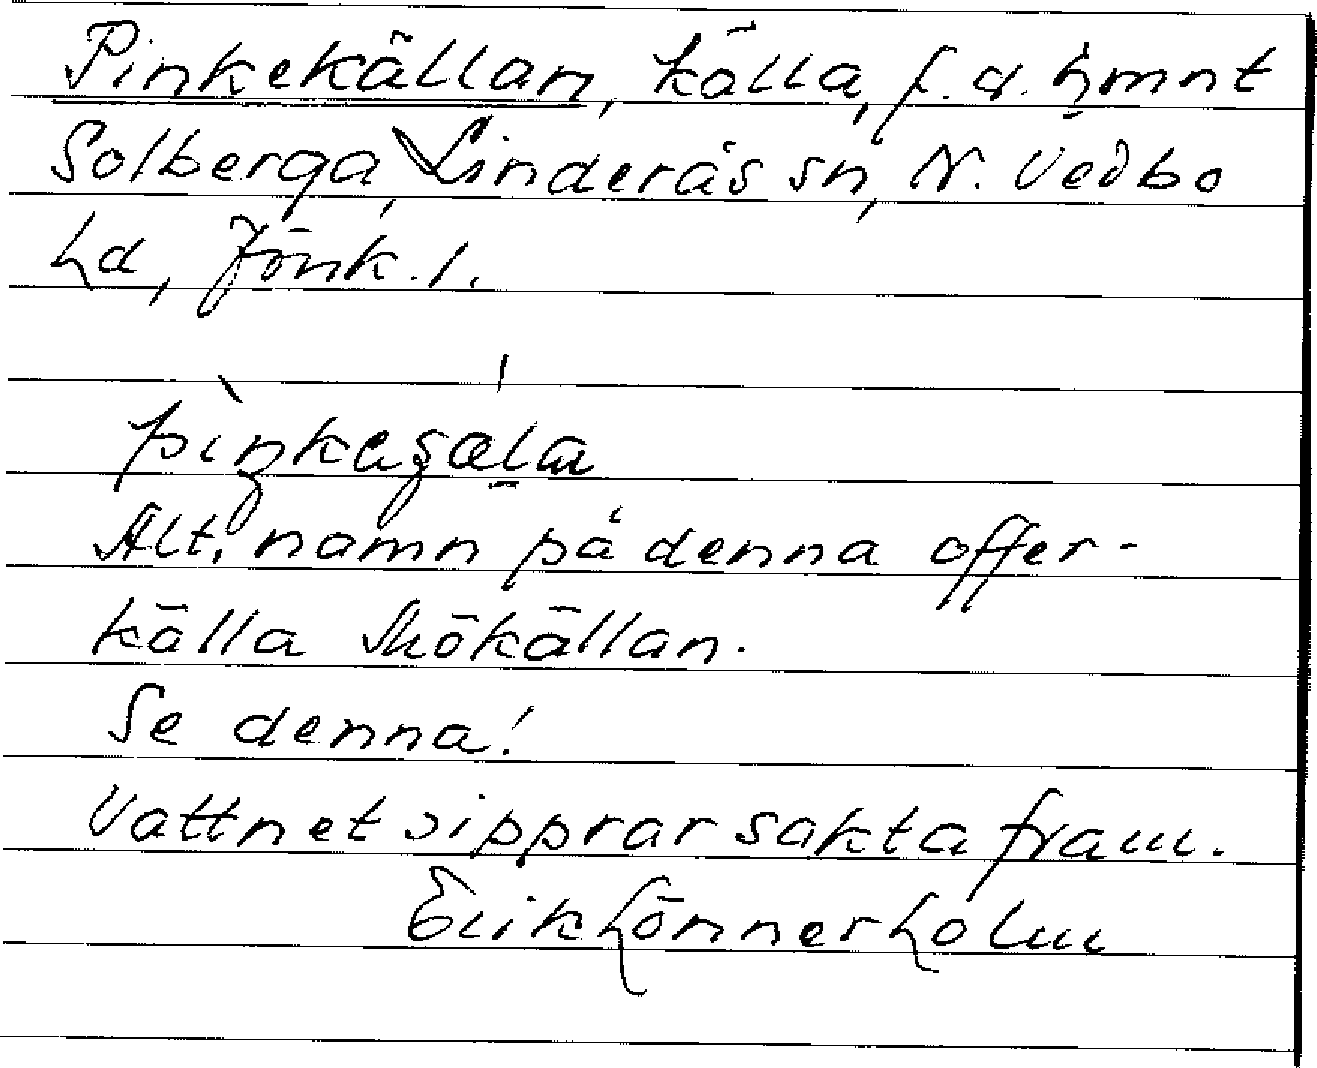 Pinkekällan, källa, f. d. hmnt
Solberga, Linderås sn, N. Vedbo
hd, Jönk. l.
Alt. namn på denna offer-
källa Skökällan.
Se denna!
Vattnet sipprar sakta fram.
Erik Lönnerholm